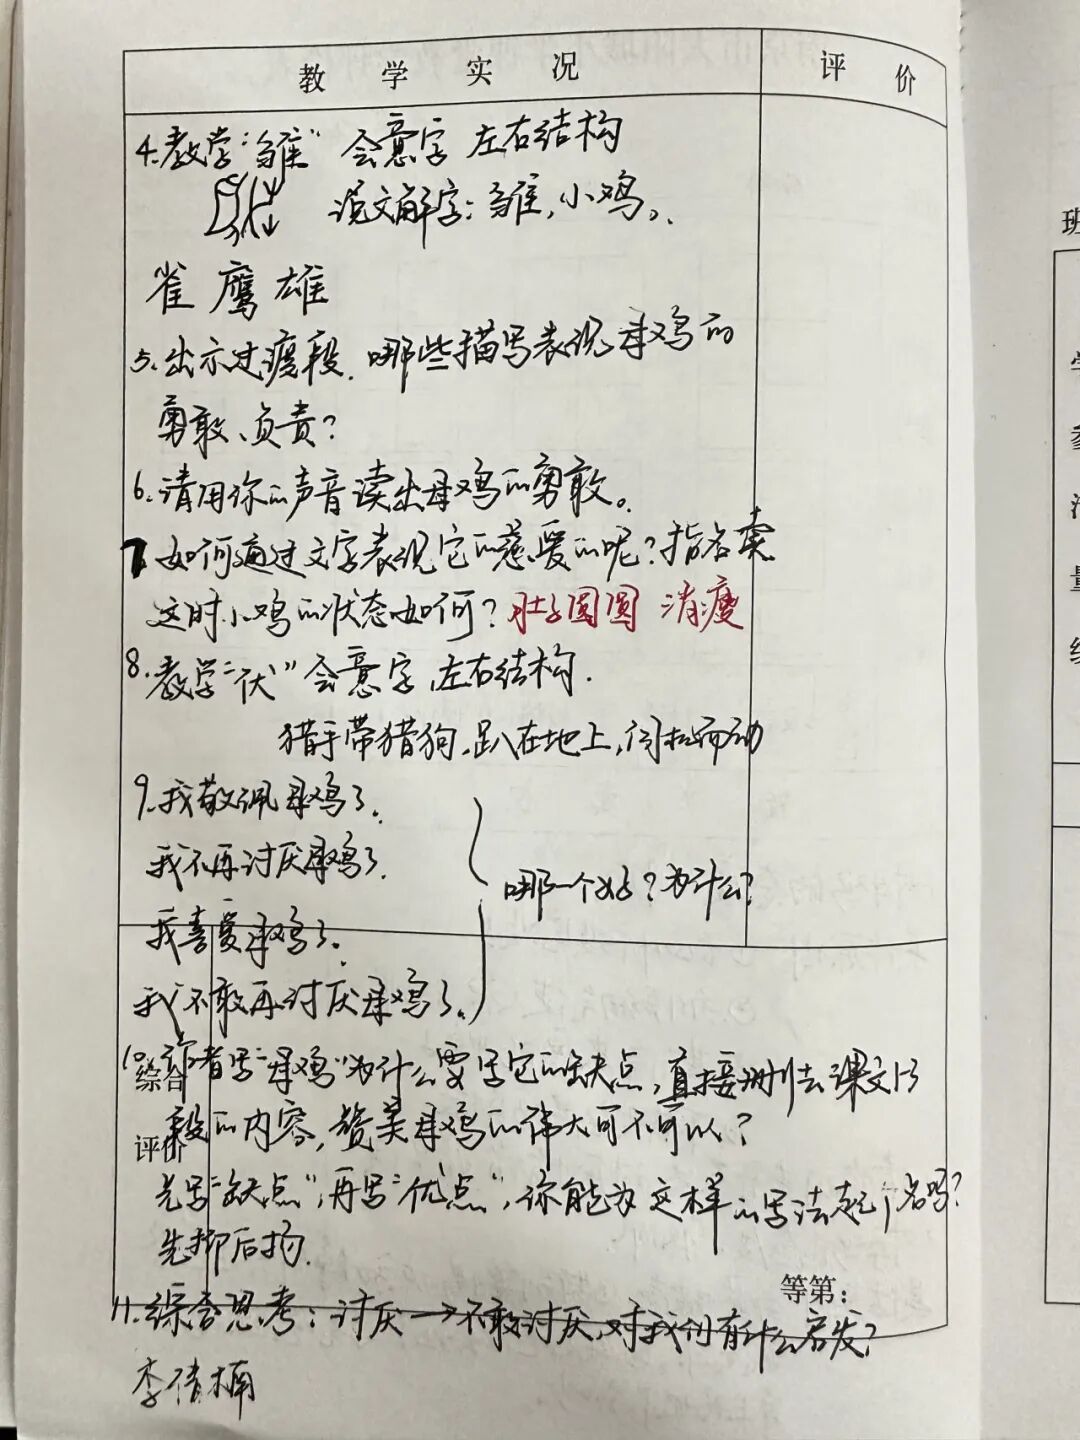 教学实况 评价
4.教学“雏” 会意字 左右结构
说文解字：雏，小鸡。
雀 鹰 雄
5.出示过渡段.哪些描写表现母鸡的
勇敢、负责？
6.请用你的声音读出母鸡的勇敢。
7.如何通过文字表现它的慈爱的呢？指名读
这时小鸡的状态如何？肚子圆圆 消瘦
8.教学“伏”会意字,左右结构.
猎手带猎狗,趴在地上,伺机而动
9.我敬佩母鸡了.
我不再讨厌母鸡了.
哪一个好？为什么？
我喜爱母鸡了.
我不敢再讨厌母鸡了.
10.作者写“母鸡”为什么要写它的缺点,直接删去课文1-3
综合
段的内容,赞美母鸡的伟大可不可以？
评价
先写“缺点”,再写“优点”,你能为这样的写法起个名吗？
先抑后扬.
等第：
11.综合思考：讨厌→不敢讨厌,对我们有什么启发？
李倩楠
班
学
量